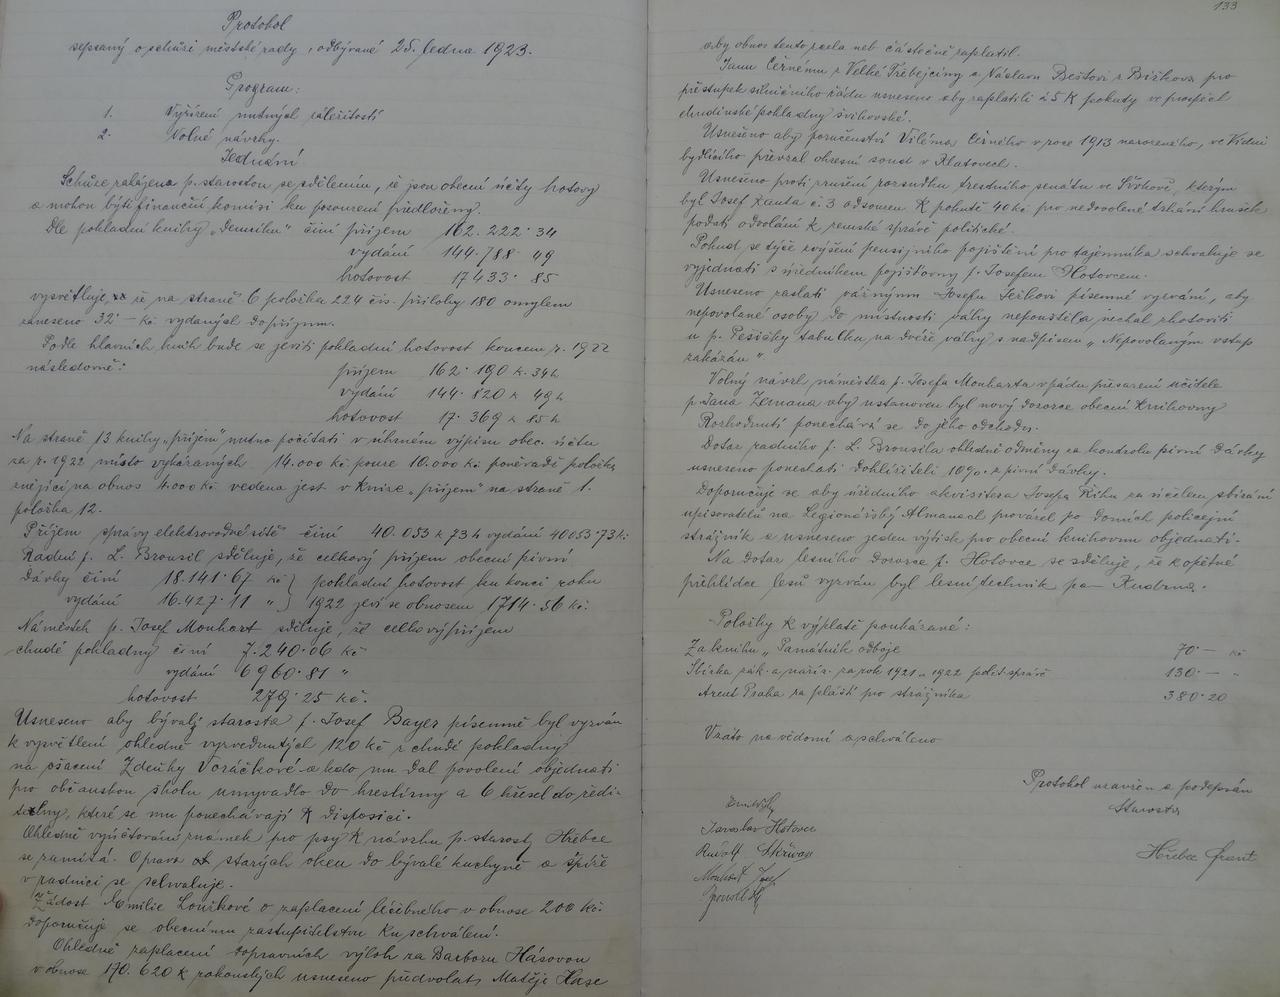 Protokol
sepsaný o schůzi městské rady, odbývané 25. ledna 1923.
Program:
1. Vyřízení nutných záležitostí
2. Volné návrhy.
Jednání
Schůze zahájena p. starostou se sdělením, že jsou obecní účty hotovy
a mohou býti finanční komisi ku posouzení předloženy.
Dle pokladní knihy „Denníku" činí příjem 162.222·34
vydání 144.788·49
hotovost 17433·85
vysvětluje, že na straně 6 položka 224 čís. přílohy 180 omylem
zaneseno 32·— Kč vydaných do příjmu.
Podle hlavních knih bude se jeviti pokladní hotovost koncem r. 1922
následovně:
příjem 162·190 K 34 h
vydání 144·820 K 49 h
hotovost 17·369 K 85 h
Na straně 13 knihy „příjem" nutno počítati v úhrném výpisu obec. účtu
za r. 1922 místo vykázaných 14.000 kč. pouze 10.000 kč. poněvadž položka
znějící na obnos 4.000 kč. vedena jest v knize „příjem" na straně 1.
položka 12.
Příjem správy elektrovodné sítě činí 40.053 K 73 h vydání 40053·73 K.
Radní p. L. Brousil sděluje, že celkový příjem obecní pivní
dávky činí 18.141·67 kč } pokladní hotovost ku konci roku
vydání 16.427·11 „ } 1922 jeví se obnosem 1714·56 Kč.
Náměstek p. Josef Monhart sděluje, že celkový příjem
chudé pokladny činí 7.240·06 kč
vydání 6960·81 „
hotovost 279·25 Kč.
Usneseno aby bývalý starosta p. Josef Bayer písemně byl vyzván
k vysvětlení ohledně vyzvednutých 120 Kč z chudé pokladny
na ošacení Zdeňky Voráčkové a kdo mu dal povolení objednati
pro občanskou školu umyvadlo do kreslírny a 6 křesel do ředi-
telny, které se mu ponechávají K disposici.
Ohledně vyúčtování známek pro psy K návrhu p. starosty Hřebce
se zamítá. Oprava starých oken do bývalé kuchyně a špíže
v radnici se schvaluje.
Žádost Emilie Loužkové o zaplacení léčebného v obnose 200 Kč.
doporučuje se obecnímu zastupitelstvu ku schválení.
Ohledně zaplacení dopravních výloh za Barboru Hásovou
v obnose 170.620 K rakouských usneseno předvolati Matěje Hase
133
aby obnos tento zcela neb částečně zaplatil.
Janu Černému z Velké Třebejčiny a Václavu Beštovi z Bížkova pro
přestupek silničního řádu usneseno aby zaplatili 25 K pokuty ve prospěch
chudinské pokladny švihovské.
Usnešeno aby poručenství Viléma Černého v roce 1913 narozeného, ve Vídni
bydlícího převzal okresní soud v Klatovech.
Usnešeno proti zrušení rozsudku trestního senátu ve Švihově, kterým
byl Josef Žanta č. 3 odsouzen K pokutě 40 kč pro nedovolené trhání hrušek
podati odvolání k zemské správě politické.
Pokud se týče zvýšení pensijního pojištění pro tajemníka schvaluje se
vyjednati s úředníkem pojišťovny p. Josefem Hotovcem.
Usneseno zaslati vážnýmu Josefu Ježkovi písemné vyzvání, aby
nepovolané osoby do místnosti váhy nepouštěla nechal zhotoviti
u p. Pešičky tabulku na dvéře váhy s nadpisem „Nepovolaným vstup
zakázán"
Volný návrh náměstka p. Josefa Monharta v pádu přesazení učitele
p. Jana Zemana aby ustanoven byl nový dozorce obecní knihovny
Rozhodnutí ponechává se do jeho odchodu.
Dotaz radního p. L. Brousila ohledně odměny za kontrolu pivní dávky
usneseno ponechati dohližiteli 10% z pivní dávky.
Doporučuje se aby úředního akvisitera Josefa Říhu za účelem sbírání
upisovatelů na Legionářský Almanach provázel po domích policejní
strážník a usneseno jeden výtisk pro obecní knihovnu objednati.
Na dotaz lesního dozorce p. Hotovce se sděluje, že k opětné
přehlídce lesů vyzván byl lesní technik pan Kudrna.
Položky k výplatě poukázané:
Za knihu „Památník odboje 70·— kč
Sbírka zák. a naříz. za rok 1921 a 1922 polit. správě 130·— „
Arent Praha za plášť pro strážníka 380·20
Vzato na vědomí a schváleno
Protokol uzavřen a podepsán
Starosta
Jaroslav Hotovec
Rudolf Skřivan
Monhart Josef
Brousil L.
Hřebec Frant